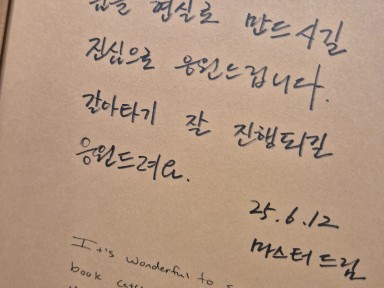 꿈을 현실로 만드시길
진심으로 응원드립니다.
갈아타기 잘 진행되길
응원드려요.
25.6.12
마스터 드림
It's wonderful to
book